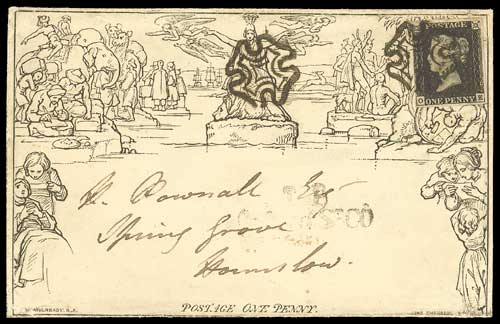 O ONE PENNY E
H. Pownall Esq
Spring Grove
Hounslow.
POSTAGE ONE PENNY.
W. MULREADY. R.A.